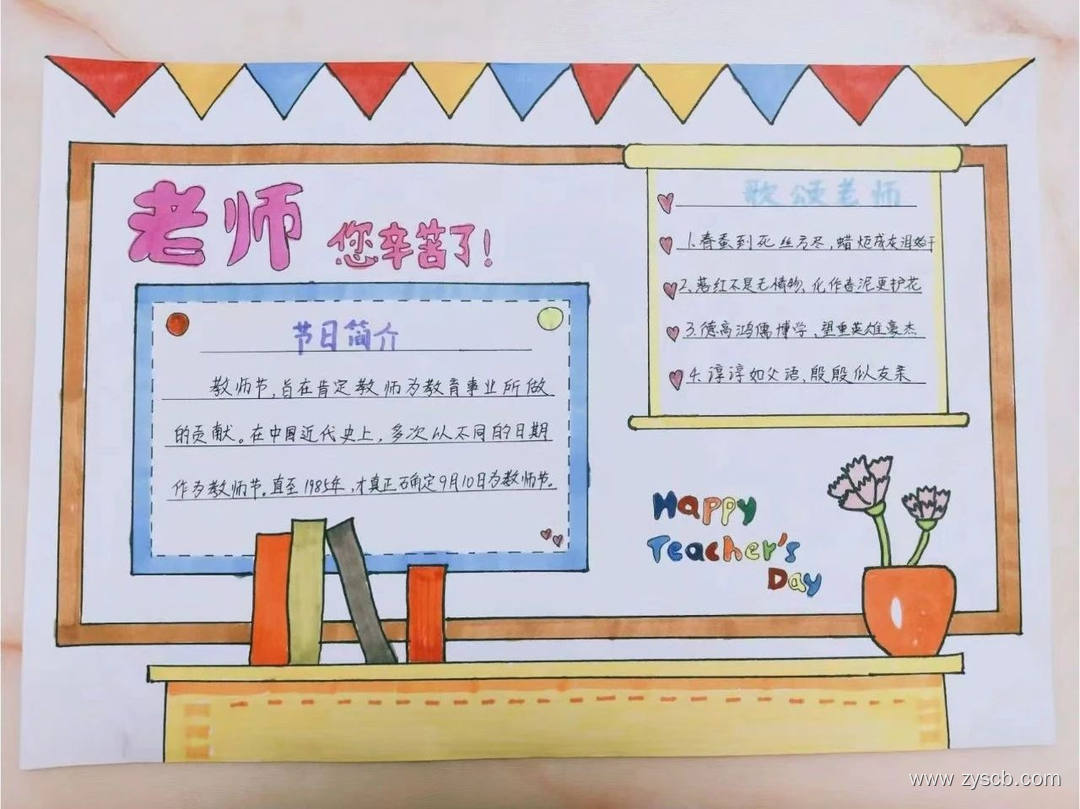 老师
您辛苦了!
节日简介
教师节,旨在肯定教师为教育事业所做
的贡献。在中国近代史上,多次以不同的日期
作为教师节。直至1985年,才真正确定9月10日为教师节。
歌颂老师
1.春蚕到死丝方尽,蜡炬成灰泪始干
2、落红不是无情物、化作春泥更护花
3、德高鸿儒博学、望重英雄豪杰
4、谆谆如父语、殷殷似友亲
Happy
Teacher's
Day
www.zyscb.com